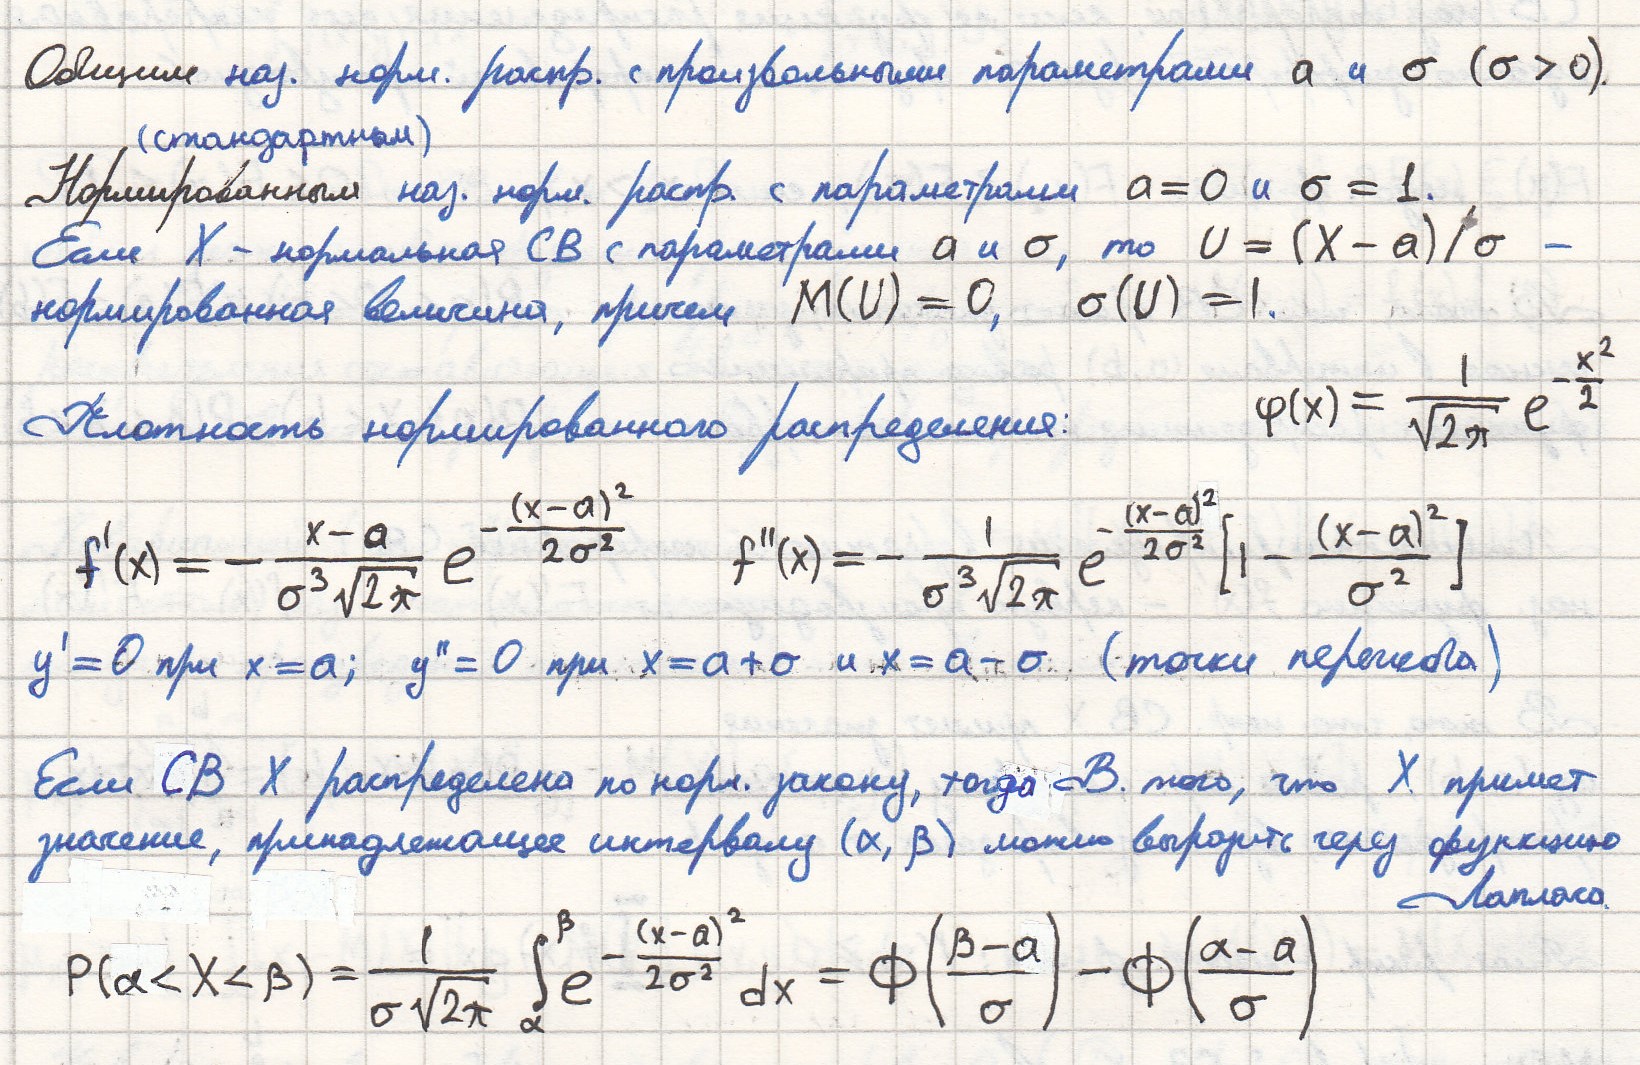 Общим наз. норм. распр. с произвольными параметрами a и σ (σ > 0).
(стандартным)
Нормированным наз. норм. распр. с параметрами a = 0 и σ = 1.
Если X - нормальная СВ с параметрами a и σ, то U = (X - a)/σ –
нормированная величина, причем M(U) = 0, σ(U) = 1.
Плотность нормированного распределения: φ(x) = 1/√2π e^(-x²/2)
f'(x) = - (x-a)/(σ³√2π) e^(-(x-a)²/2σ²) f''(x) = - 1/(σ³√2π) e^(-(x-a)²/2σ²) [1 - (x-a)²/σ²]
y' = 0 при x = a; y'' = 0 при x = a + σ и x = a - σ (точки перегиба)
Если СВ X распределена по норм. закону, тогда В. того, что X примет
значение, принадлежащее интервалу (α, β) можно выразить через функцию
Лапласа.
P(α < X < β) = 1/(σ√2π) ∫_α^β e^(-(x-a)²/2σ²) dx = Φ((β-a)/σ) - Φ((α-a)/σ)